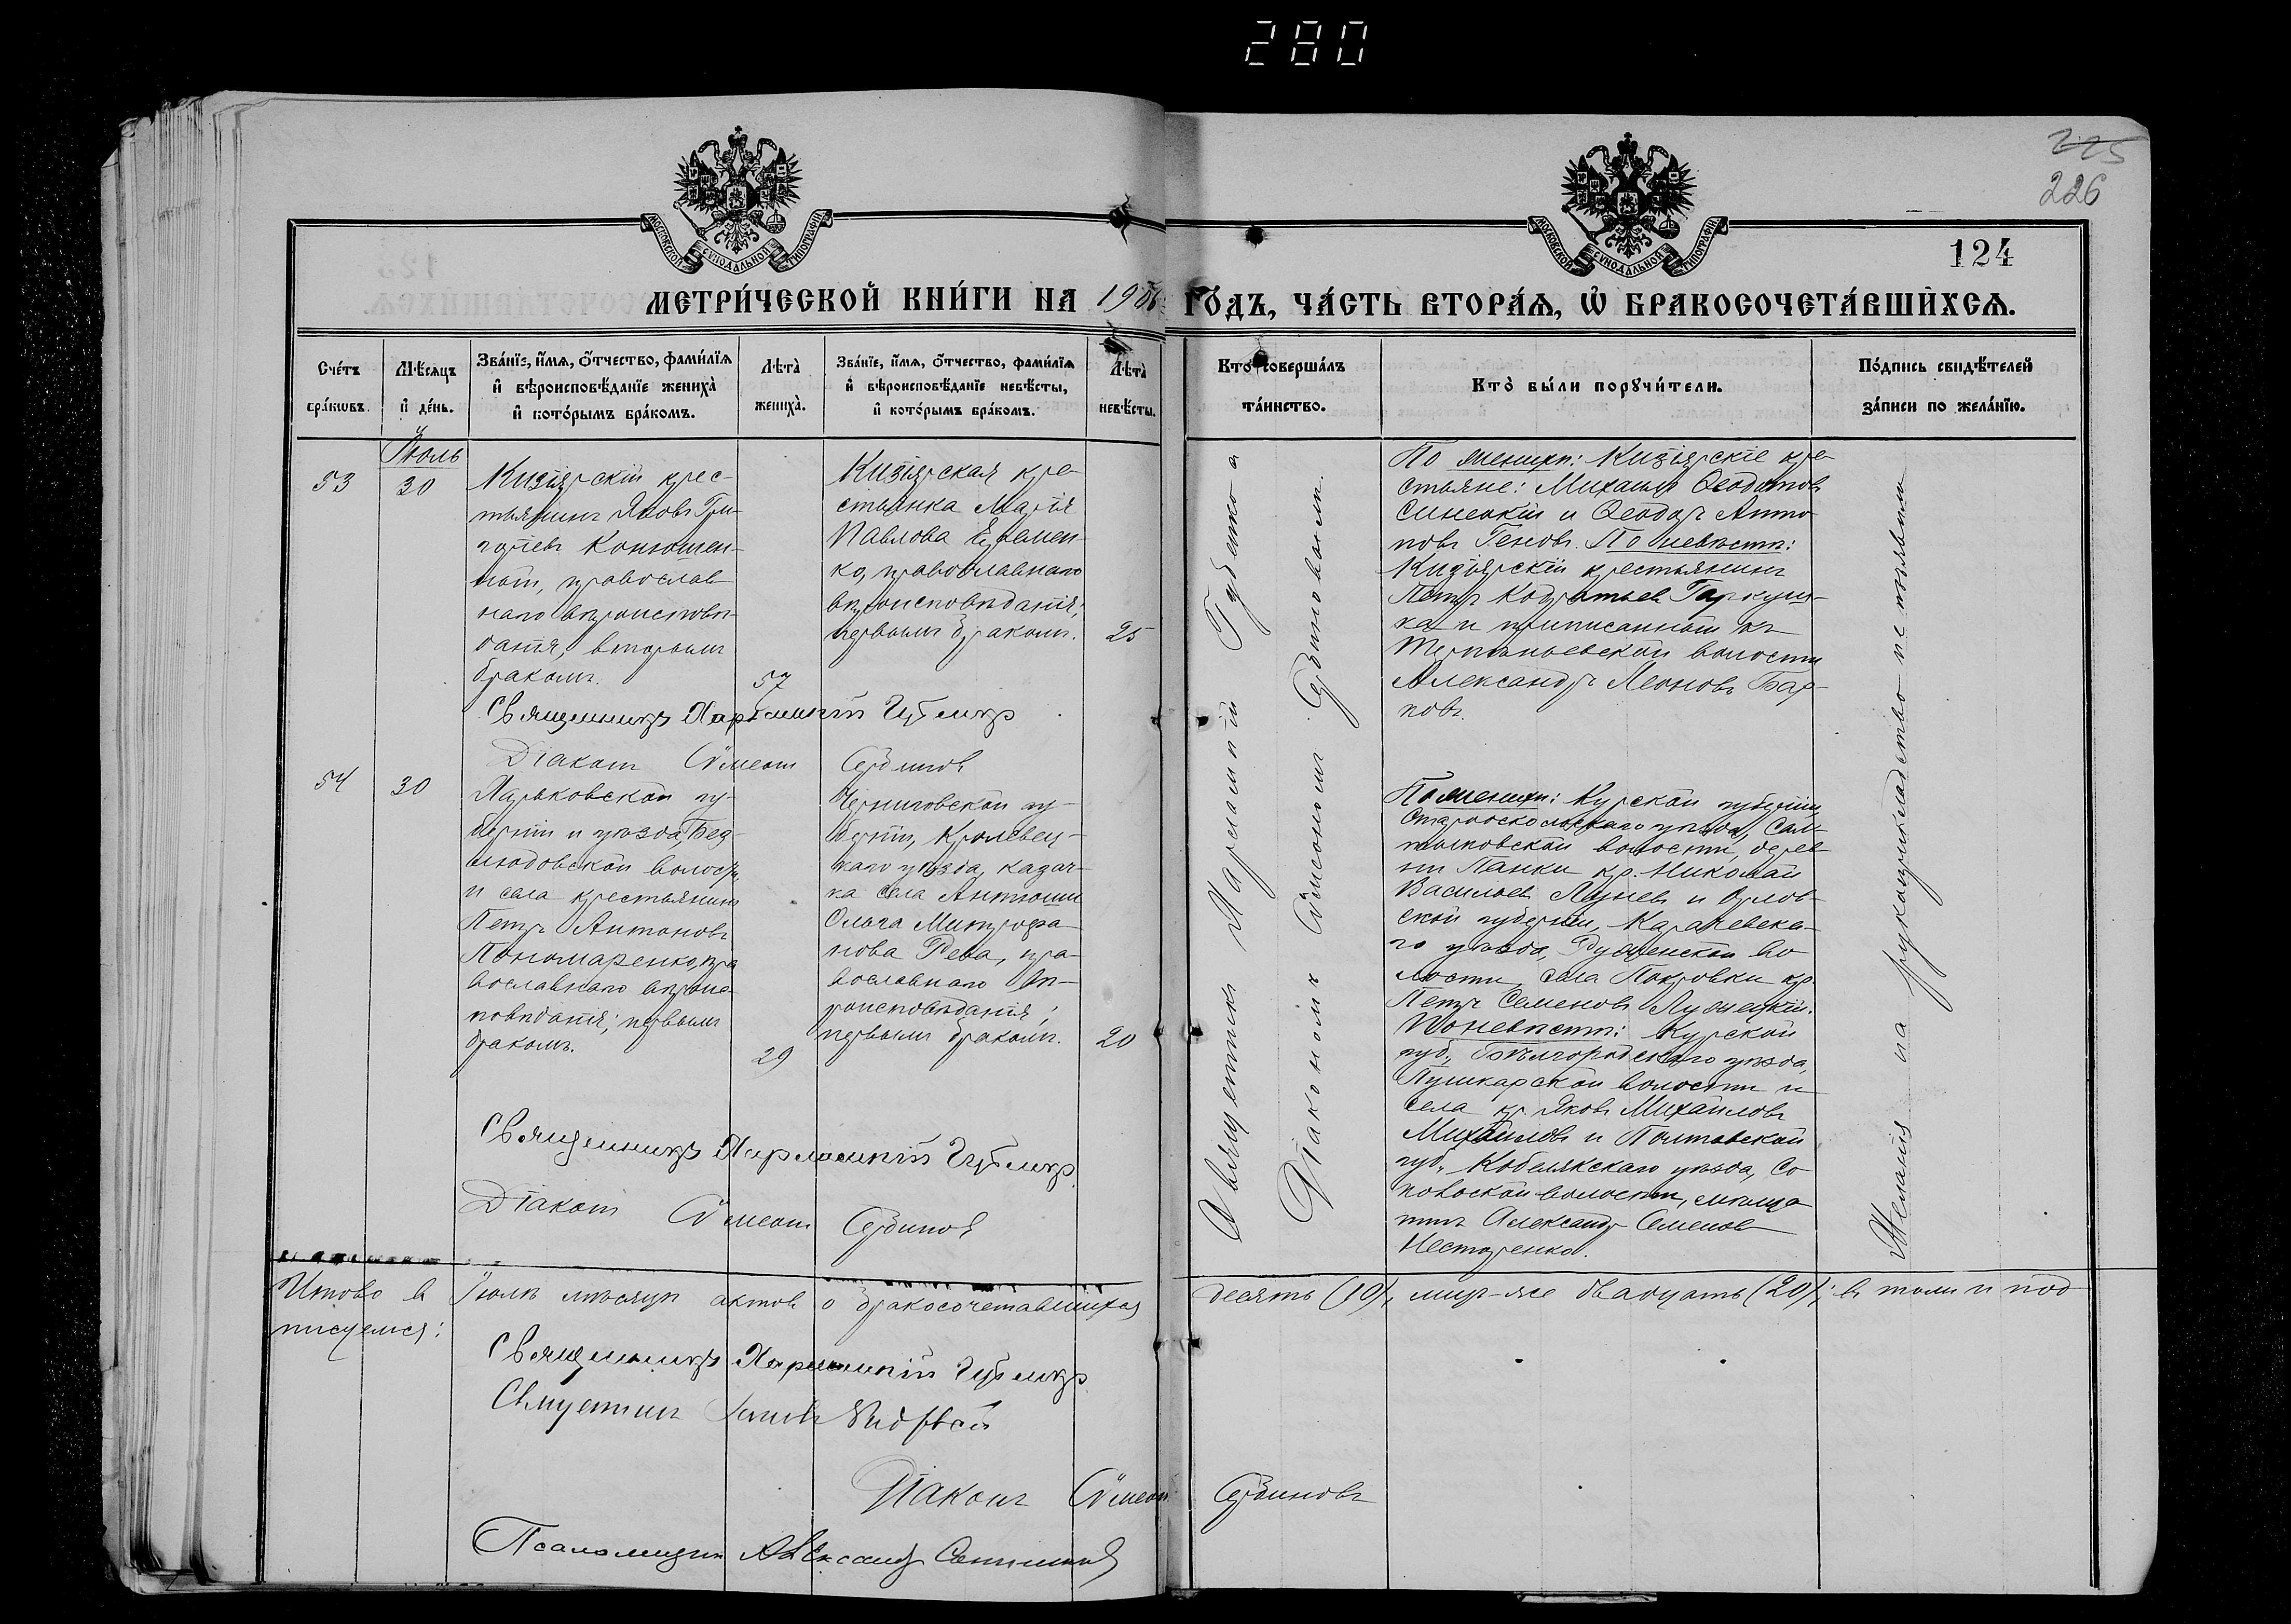 280
225
226
124
МОСКОВСКОЙ СѴНОДАЛЬНОЙ ТИПОГРАФІИ
МОСКОВСКОЙ СѴНОДАЛЬНОЙ ТИПОГРАФІИ
МЕТРИ́ЧЕСКОЙ КНИ́ГИ НА 1906 ГО́ДЪ, ЧА́СТЬ ВТОРА́Я, Ѡ БРАКОСОЧЕТА́ВШИХСЯ.
Сче́тъ
бра́кѡвъ.
Мѣ́сяцъ
и де́нь.
Зва́нїе, и́мя, ѻ́тчество, фами́лїя
и вѣроисповѣ́данїе жениха̀
и кото́рымъ бра́комъ.
Лѣта̀
жениха̀.
Зва́нїе, и́мя, ѻ́тчество, фами́лїя
и вѣроисповѣ́данїе невѣ́сты,
и кото́рымъ бра́комъ.
Лѣта̀
невѣ́сты.
Кто̀ соверша́лъ
та́инство.
Кто̀ бы́ли порꙋчи́тели.
По́дпись свидѣ́телей
за́писи по жела́нїю.
Іюль
53
30
Кизіярскій крес-
тьянинъ Яковъ Гри-
горіевъ Конюшен-
ной, православ
наго вѣроисповѣ-
данія, вторымъ
бракомъ.
57
Кизіярская кре-
стьянка Марія
Павлова Еремен-
ко, православнаго
вѣроисповѣданія;
первымъ бракомъ.
25
Священникъ Харлампій Губенко
Діаконъ Сѵмеонъ Сербиновъ
Священникъ Харлампій Губенко и
Діаконъ Сѵмеонъ Сербиновымъ.
По женихѣ: Кизіярскіе кре-
стьяне: Михаилъ Ѳеодотовъ
Синеокій и Ѳеодоръ Анто
новъ Геновъ. По невѣстѣ:
Кизіярскій крестьянинъ
Петръ Кодратьевъ Гаркуш-
ка и приписанной къ
Терпѣньевской волости
Александръ Леоновъ Бар-
ковъ.
Желанія на рукоприкладство не изъявили
54
30
Харьковской гу-
берніи и уѣзда, Без-
людовской волости
и села крестьянинъ
Петръ Антоновъ
Пономаренко, пра
вославнаго вѣроис-
повѣданія; первымъ
бракомъ.
29
Черниговской гу-
берніи, Кролевец-
каго уѣзда, казач-
ка села Антюши
Ольга Митрофа-
нова Рева, пра-
вославнаго вѣ-
роисповѣданія;
первымъ бракомъ.
20
По женихѣ: Курской губерніи,
Старооскольскаго уѣзда, Сал-
тыковской волости, дерев
ни Панки кр. Николай
Васильевъ Лунев и Орлов-
ской губерніи, Карачевска-
го уѣзда, во
лости, села Покровки кр.
Петръ Семеновъ
По невѣстѣ: Курской
губ., Бѣлгородскаго уѣзда,
Пушкарской волости и
села кр. Яковъ Михайловъ
Михайловъ и Полтавской
губ., Кобелякскаго уѣзда, Со
волости, мѣща
нинъ Александръ Семеновъ
Нестеренко.
Священникъ Харлампій Губенко
Діаконъ Сѵмеонъ Сербиновъ
Итого въ Іюлѣ мѣсяцѣ актовъ о бракосочетавшихся десять (10), лицъ-же двадцать (20); въ томъ и под-
писуемся:
Священникъ Харлампій Губенко
Священникъ
Діаконъ Сѵмеонъ Сербиновъ
Псаломщикъ Александръ